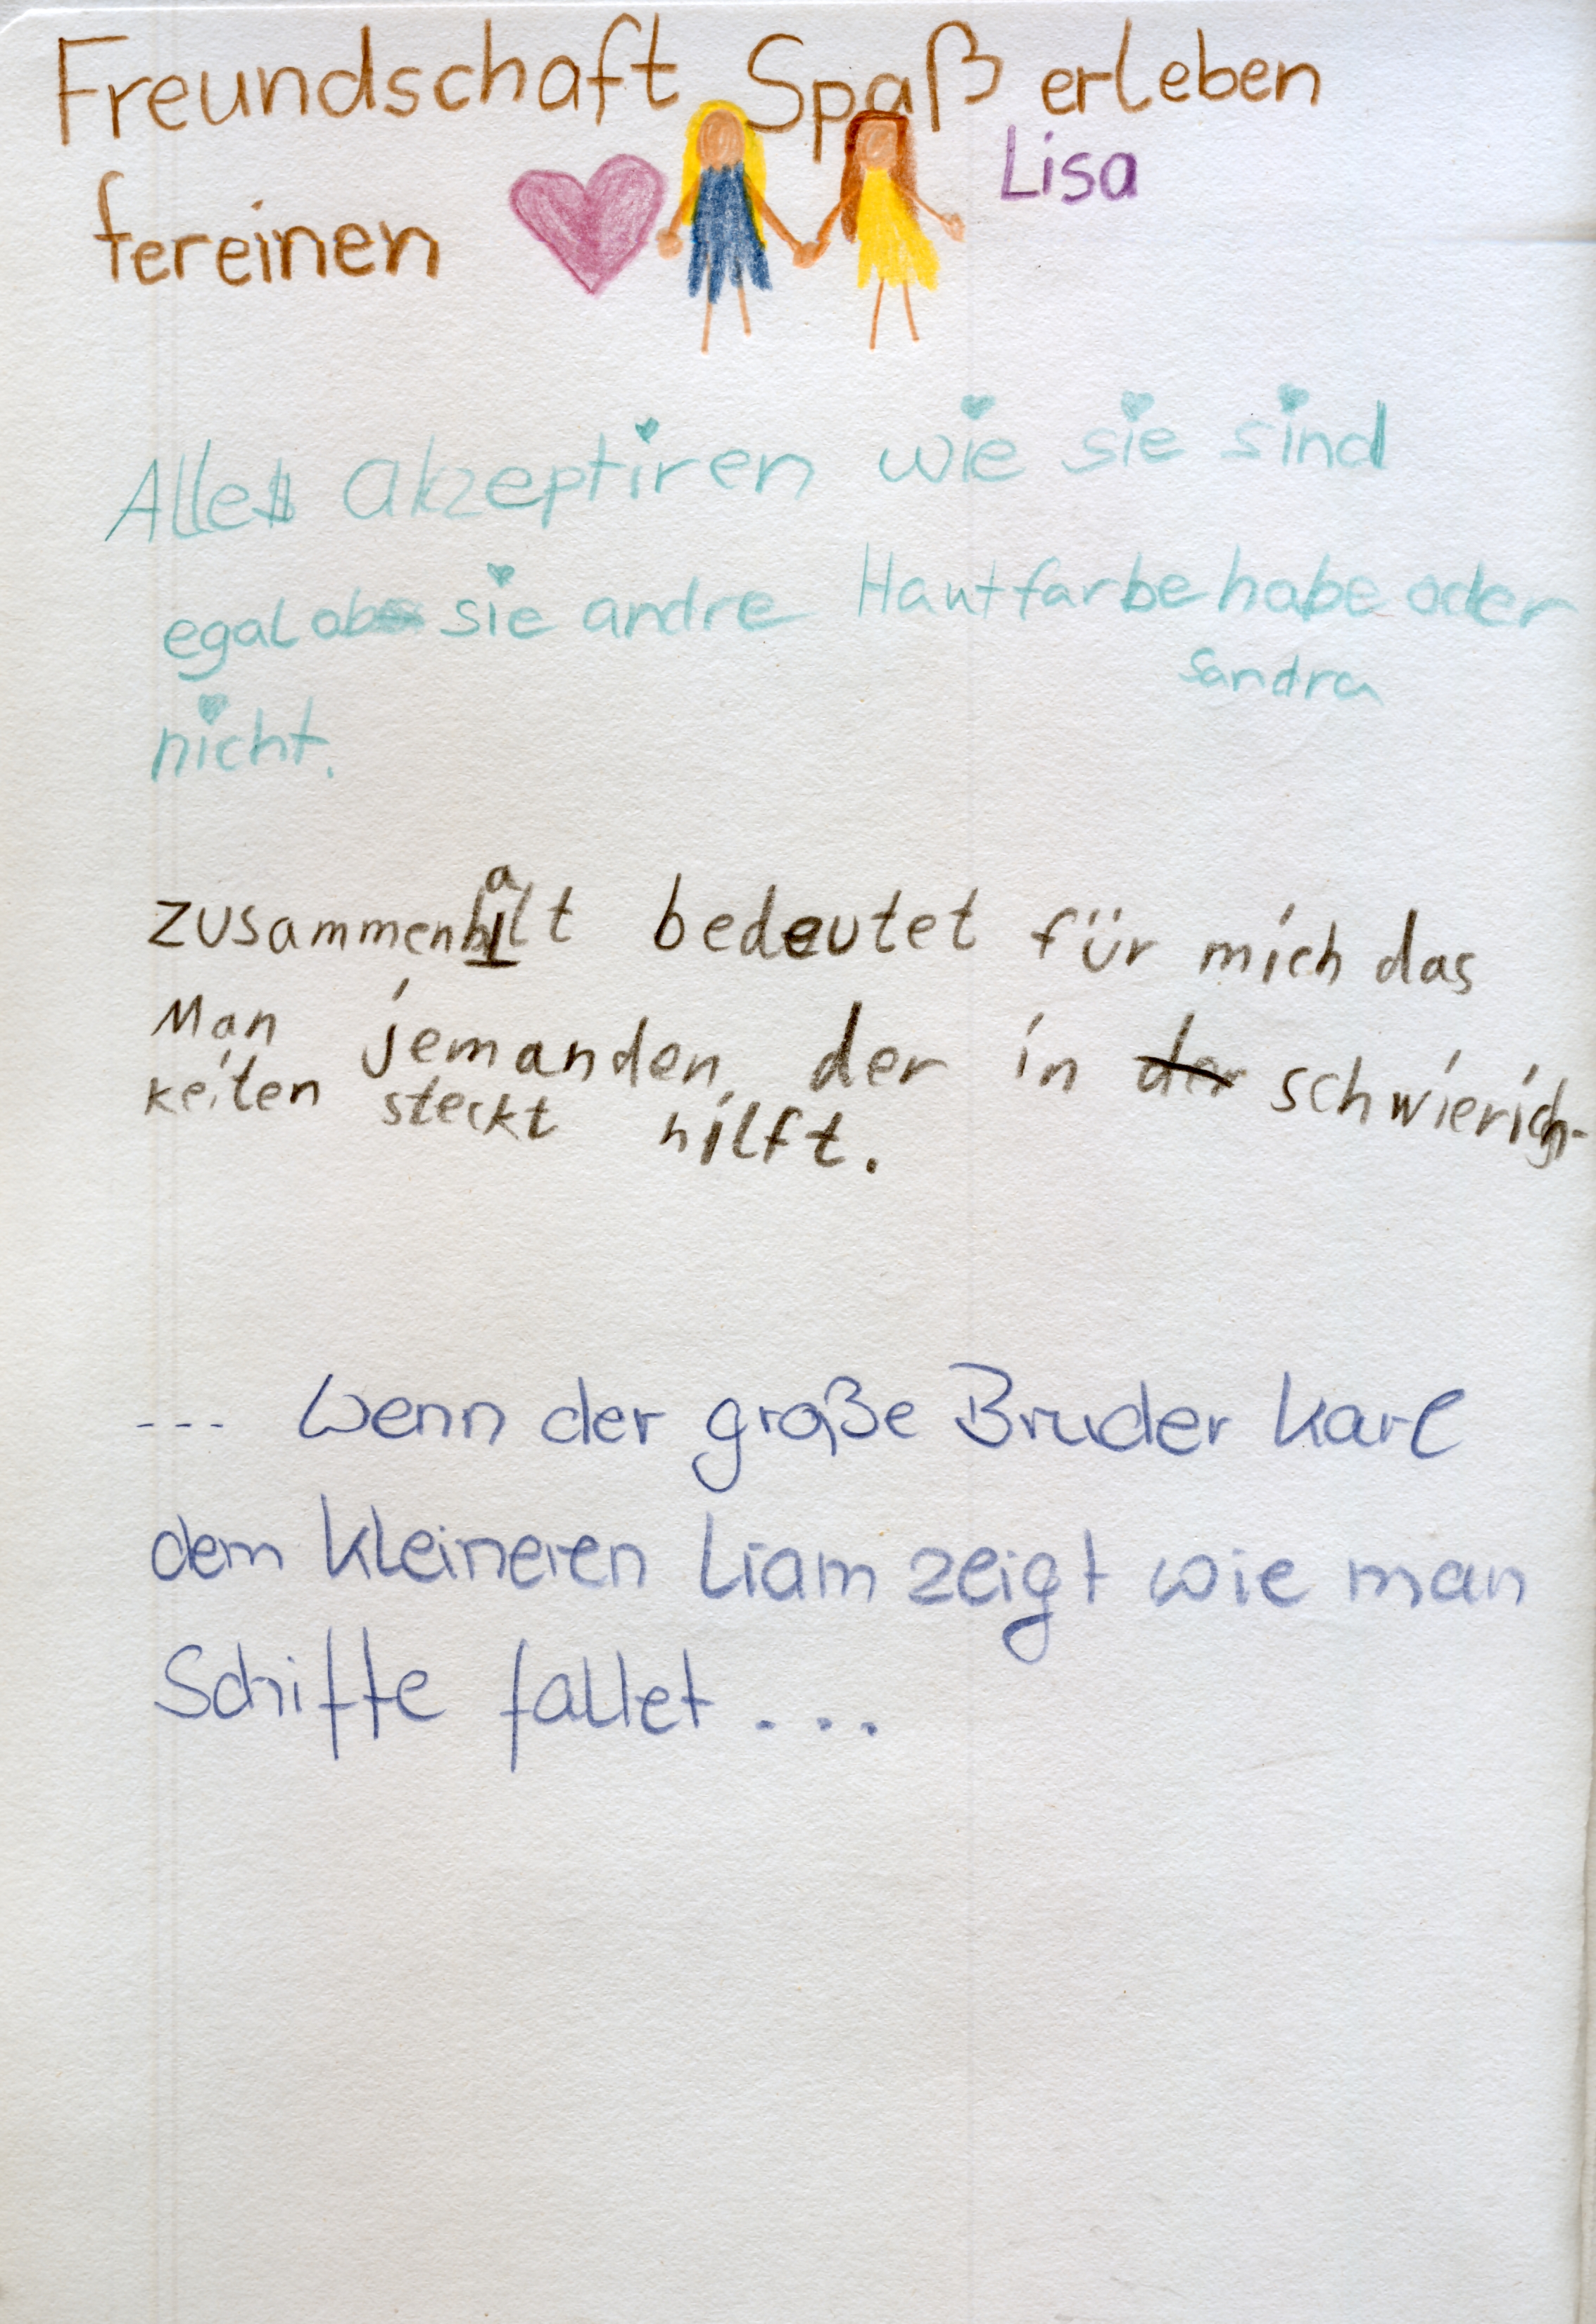 Freundschaft Spaß erleben
Lisa
fereinen
Alle akzeptiren wie sie sind
egal ob sie andre Hautfarbe habe oder
Sandra
nicht.
Zusammenhalt bedeutet für mich das
Man jemanden, der in der schwierich-
keiten steckt hilft.
--- Wenn der große Bruder Karl
dem kleineren Liam zeigt wie man
Schiffe faltet ...